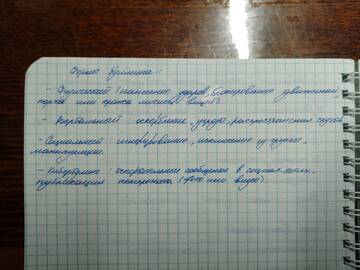 Формы буллинга:
- Физический (нанесение ударов, блокирование движения,
порча или кража личных вещей)
- Вербальный: оскорбления, угрозы, распространение слухов
- Социальный: игнорирование, исключение из группы,
манипуляции.
- Кибербуллинг: оскорбительные сообщения в социал. сетях,
публикация компромата (фото или видео)